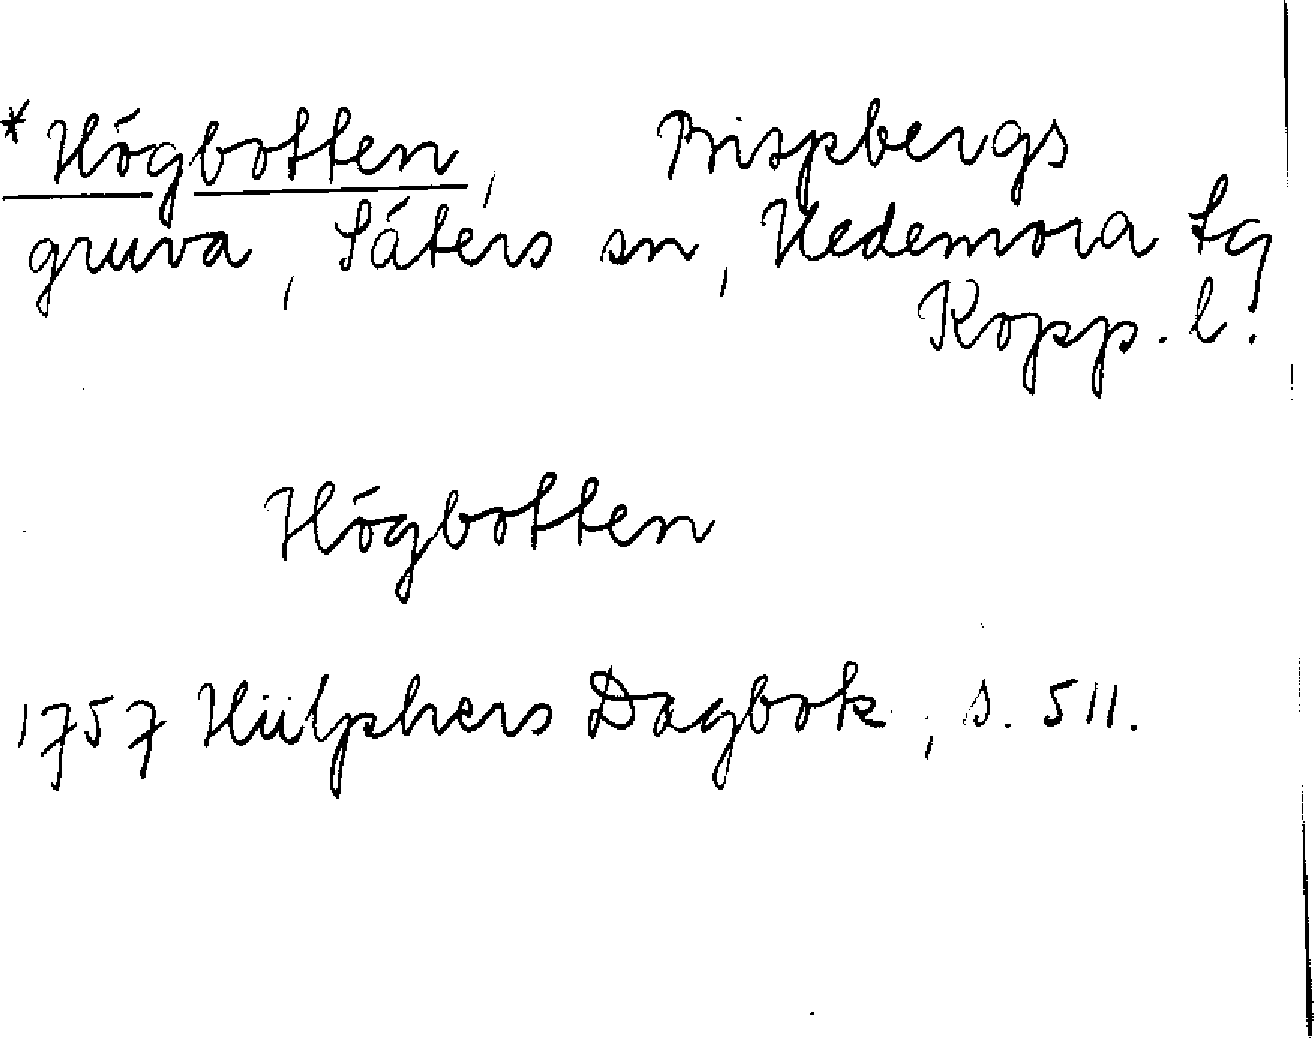 *Högbotten, Bispbergs
gruva, Säters sn, Hedemora tg
Kopp. l.
Högbotten
1757 Hülphers Dagbok, s. 511.